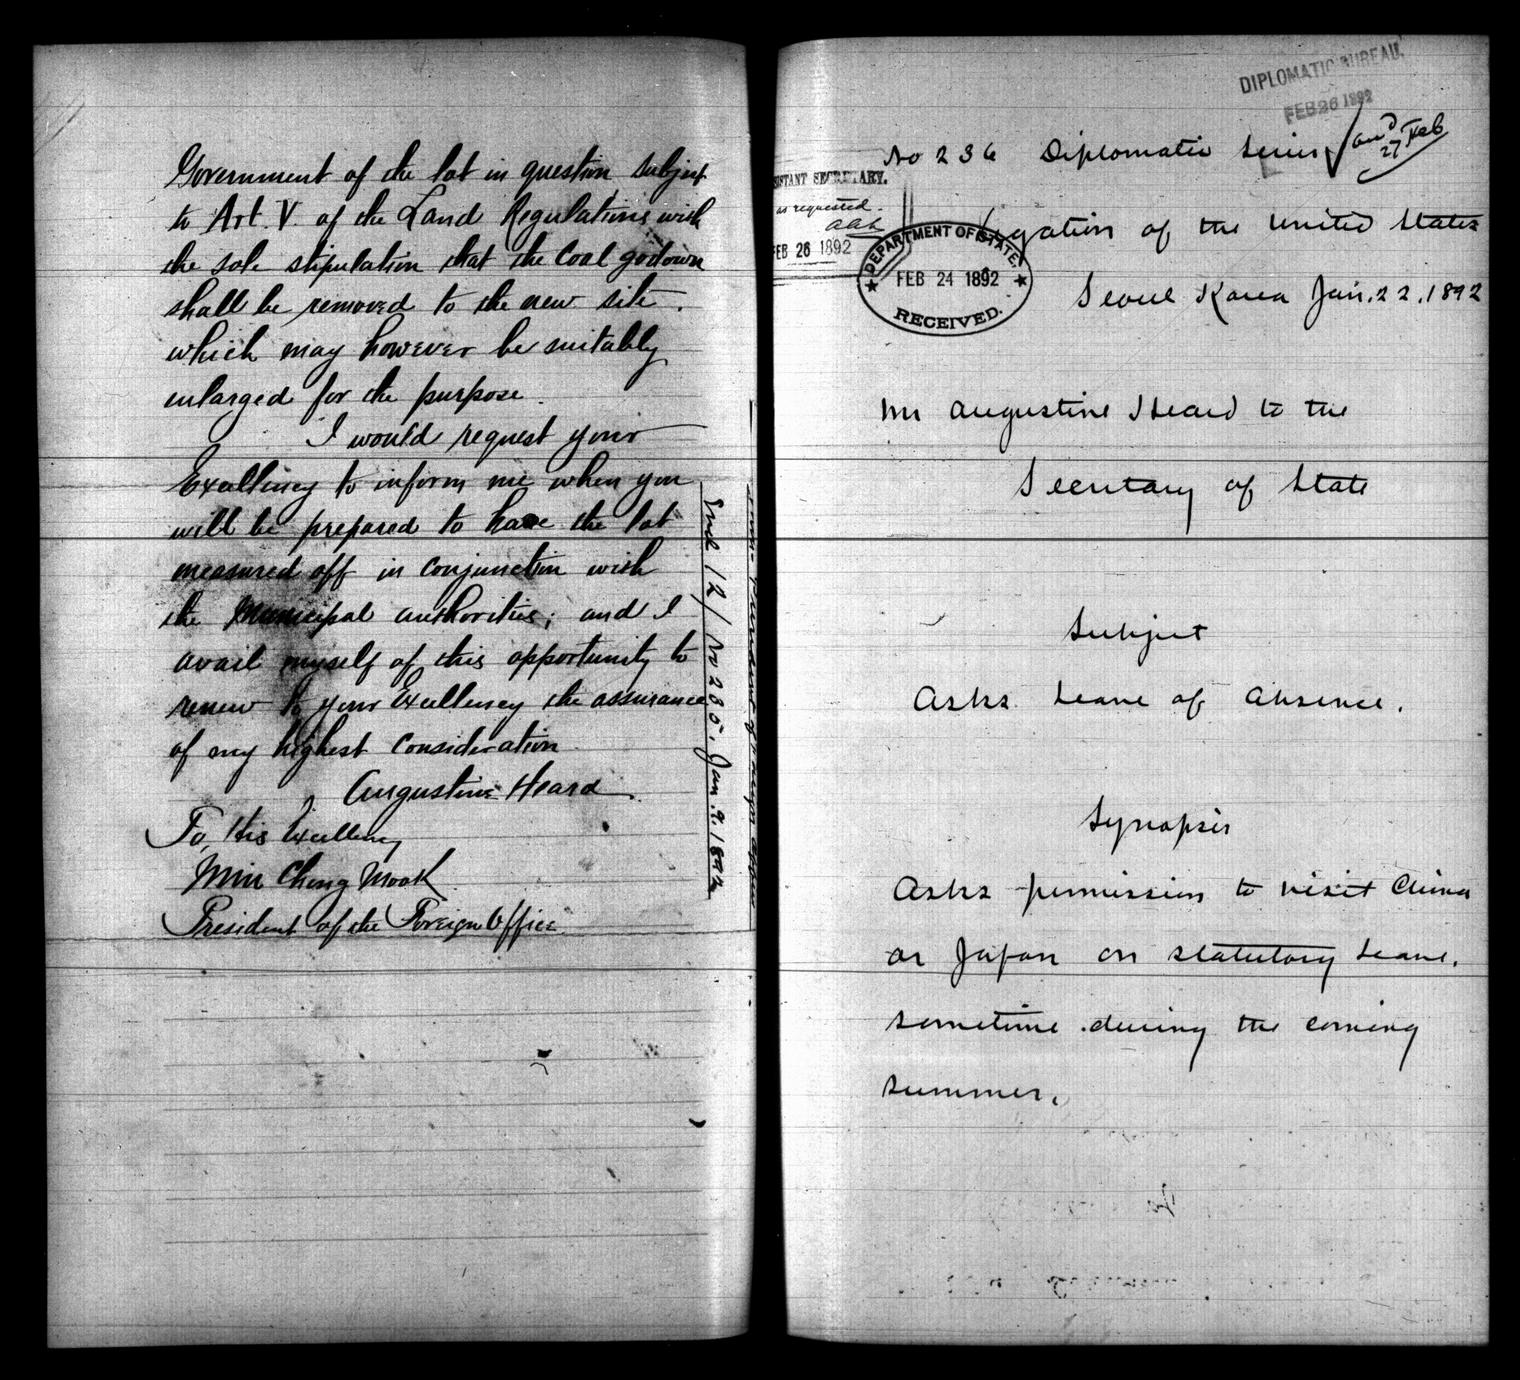 Government of the lot in question subject
to Art. V. of the Land Regulations with
the sole stipulation that the Coal godown
shall be removed to the new site.
which may however be suitably
enlarged for the purpose.
I would request your
Excellency to inform me when you
will be prepared to have the lot
measured off in conjunction with
the Municipal authorities; and I
avail myself of this opportunity to
renew to your Excellency the assurance
of my highest consideration
Augustine Heard
To, His Excellency
Min Chong Mook
President of the Foreign Office
Encl 12/ No 235. Jan. 9. 1892
DIPLOMATIC BUREAU.
FEB 26 1892
No 236 Diplomatic Series
and 27 Feb
ISTANT SECRETARY.
as requested.
FEB 26 1892
Legation of the United States
DEPARTMENT OF STATE.
FEB 24 1892
RECEIVED.
Seoul Korea Jan. 22. 1892
Mr Augustine Heard to the
Secretary of State
Subject
Asks Leave of Absence.
Synopsis
Asks permission to visit China
or Japan on statutory leave.
sometime during the coming
summer.